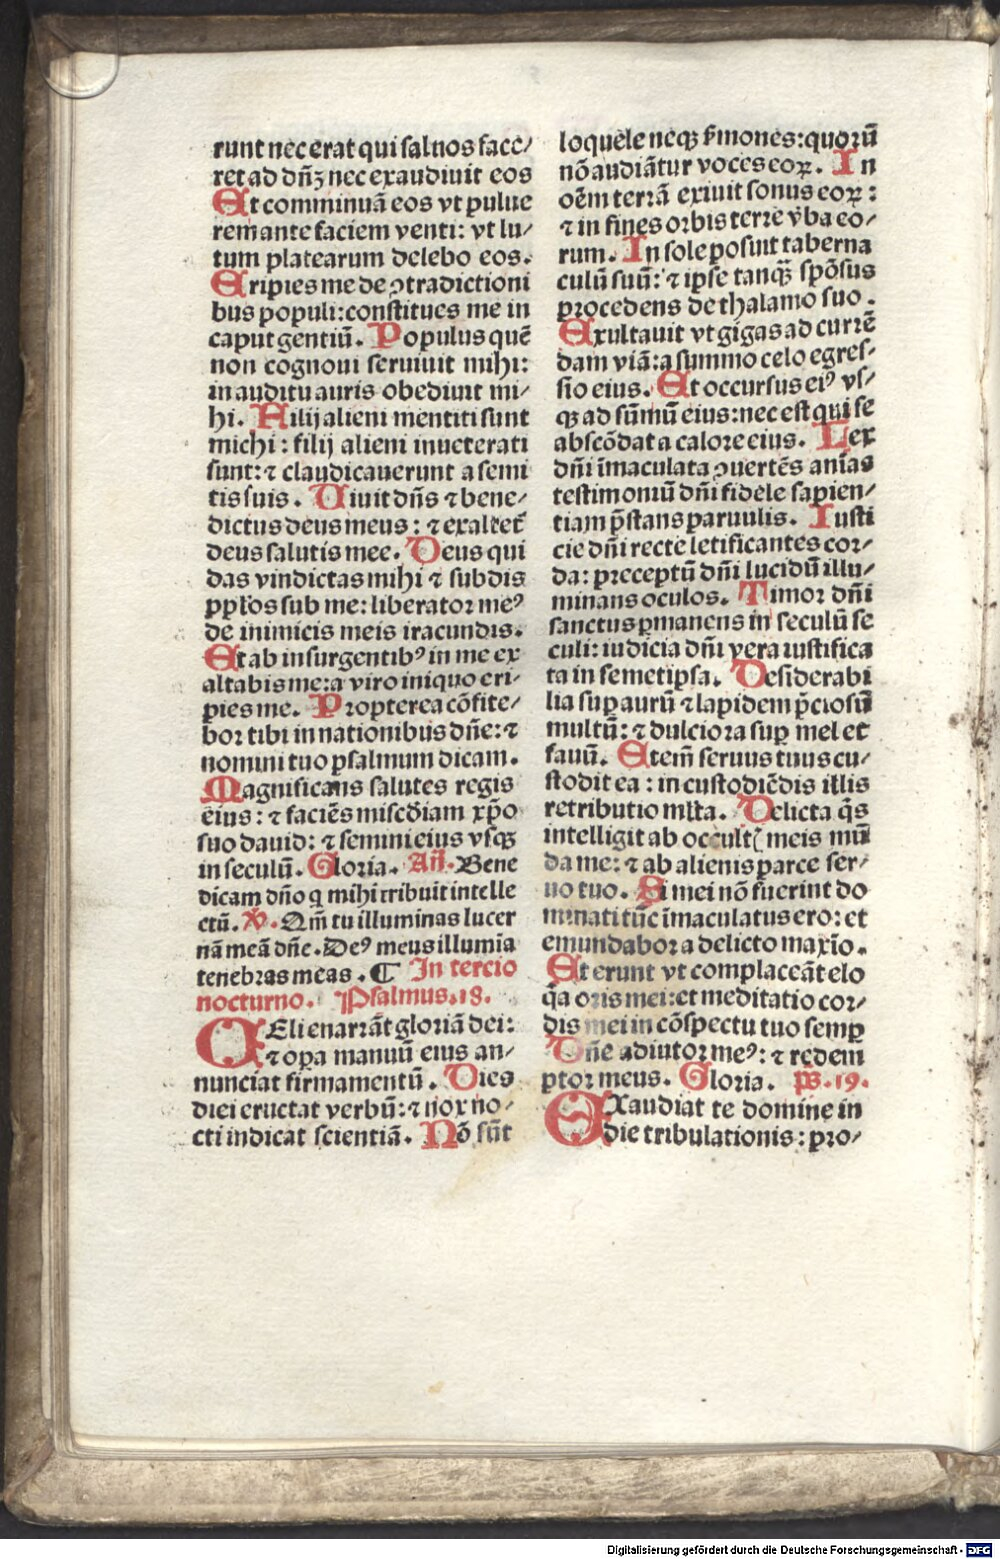 runt nec erat qui saluos face/
ret ad dñʒ nec exaudiuit eos
Et comminuã eos vt pulue
rem ante faciem venti: vt lu/
tum platearum delebo eos.
Eripies me de ꝯtradictioni
bus populi: constitues me in
caput gentiũ. Populus quẽ
non cognoui seruiuit mihi:
in auditu auris obediuit mi/
hi. Filij alieni mentiti sunt
michi: filij alieni inueterati
sunt: ⁊ claudicauerunt a semi
tis suis. Uiuit dñs ⁊ bene/
dictus deus meus: ⁊ exaltet᷑
deus salutis mee. Deus qui
das vindictas mihi ⁊ subdis
ppłos sub me: liberator meꝰ
de inimicis meis iracundis.
Et ab insurgentibꝰ in me ex
altabis me: a viro iniquo eri/
pies me. Propterea cõfite/
bor tibi in nationibus dñe: ⁊
nomini tuo psalmum dicam.
Magnificans salutes regis
eius: ⁊ faciẽs miscðiam xp̃o
suo dauid: ⁊ semini eius vsqꝫ
in seculũ. Gloria. Añ. Bene
dicam dño q mihi tribuit intelle
ctũ. ꝟ. Qm̃ tu illuminas lucer
nã meã dñe. Deꝰ meus illumia
tenebras meas. ¶ In tercio
nocturno. Psalmus. 18.
CEli enarrãt gloriã dei:
⁊ oꝑa manuũ eius an/
nunciat firmamentũ. Dies
diei eructat verbũ: ⁊ nox no/
cti indicat scientiã. Nõ sũt
loquele neqꝫ ẜmones: quorũ
nõ audiãtur voces eoꝝ. In
oẽm terrã exiuit sonus eoꝝ:
⁊ in fines orbis terre v̾ba eo/
rum. In sole posuit taberna
culũ suũ: ⁊ ipse tanqꝫ spõsus
procedens de thalamo suo.
Exultauit vt gigas ad currẽ
dam viã: a summo celo egres/
sio eius. Et occursus eiꝰ vs/
qꝫ ad sũmũ eius: nec est qui se
abscõdat a calore eius. Lex
dñi ĩmaculata ꝯuertẽs anĩas
testimoniũ dñi fidele sapien/
tiam p̃stans paruulis. Iusti
cie dñi recte letificantes cor/
da: preceptũ dñi lucidũ illu/
minans oculos. Timor dñi
sanctus ꝑmanens in seculũ se
culi: iudicia dñi vera iustifica
ta in semetipsa. Desiderabi
lia suꝑ aurũ ⁊ lapidem p̃ciosũ
multũ: ⁊ dulciora suꝑ mel et
fauũ. Etem̃ seruus tuus cu/
stodit ea: in custodiẽdis illis
retributio mlta. Delicta q̃s
intelligit ab occultꝭ meis mũ
da me: ⁊ ab alienis parce ser/
uo tuo. Si mei nõ fuerint do
minati tũc ĩmaculatus ero: et
emundabor a delicto maxĩo.
Et erunt vt complaceãt elo
q̃a oris mei: et meditatio cor/
dis mei in cõspectu tuo semꝑ
Dñe adiutor meꝰ: ⁊ redem
ptor meus. Gloria. p̃s. 19.
EXaudiat te domine in
die tribulationis: pro/
Digitalisierung gefördert durch die Deutsche Forschungsgemeinschaft - DFG